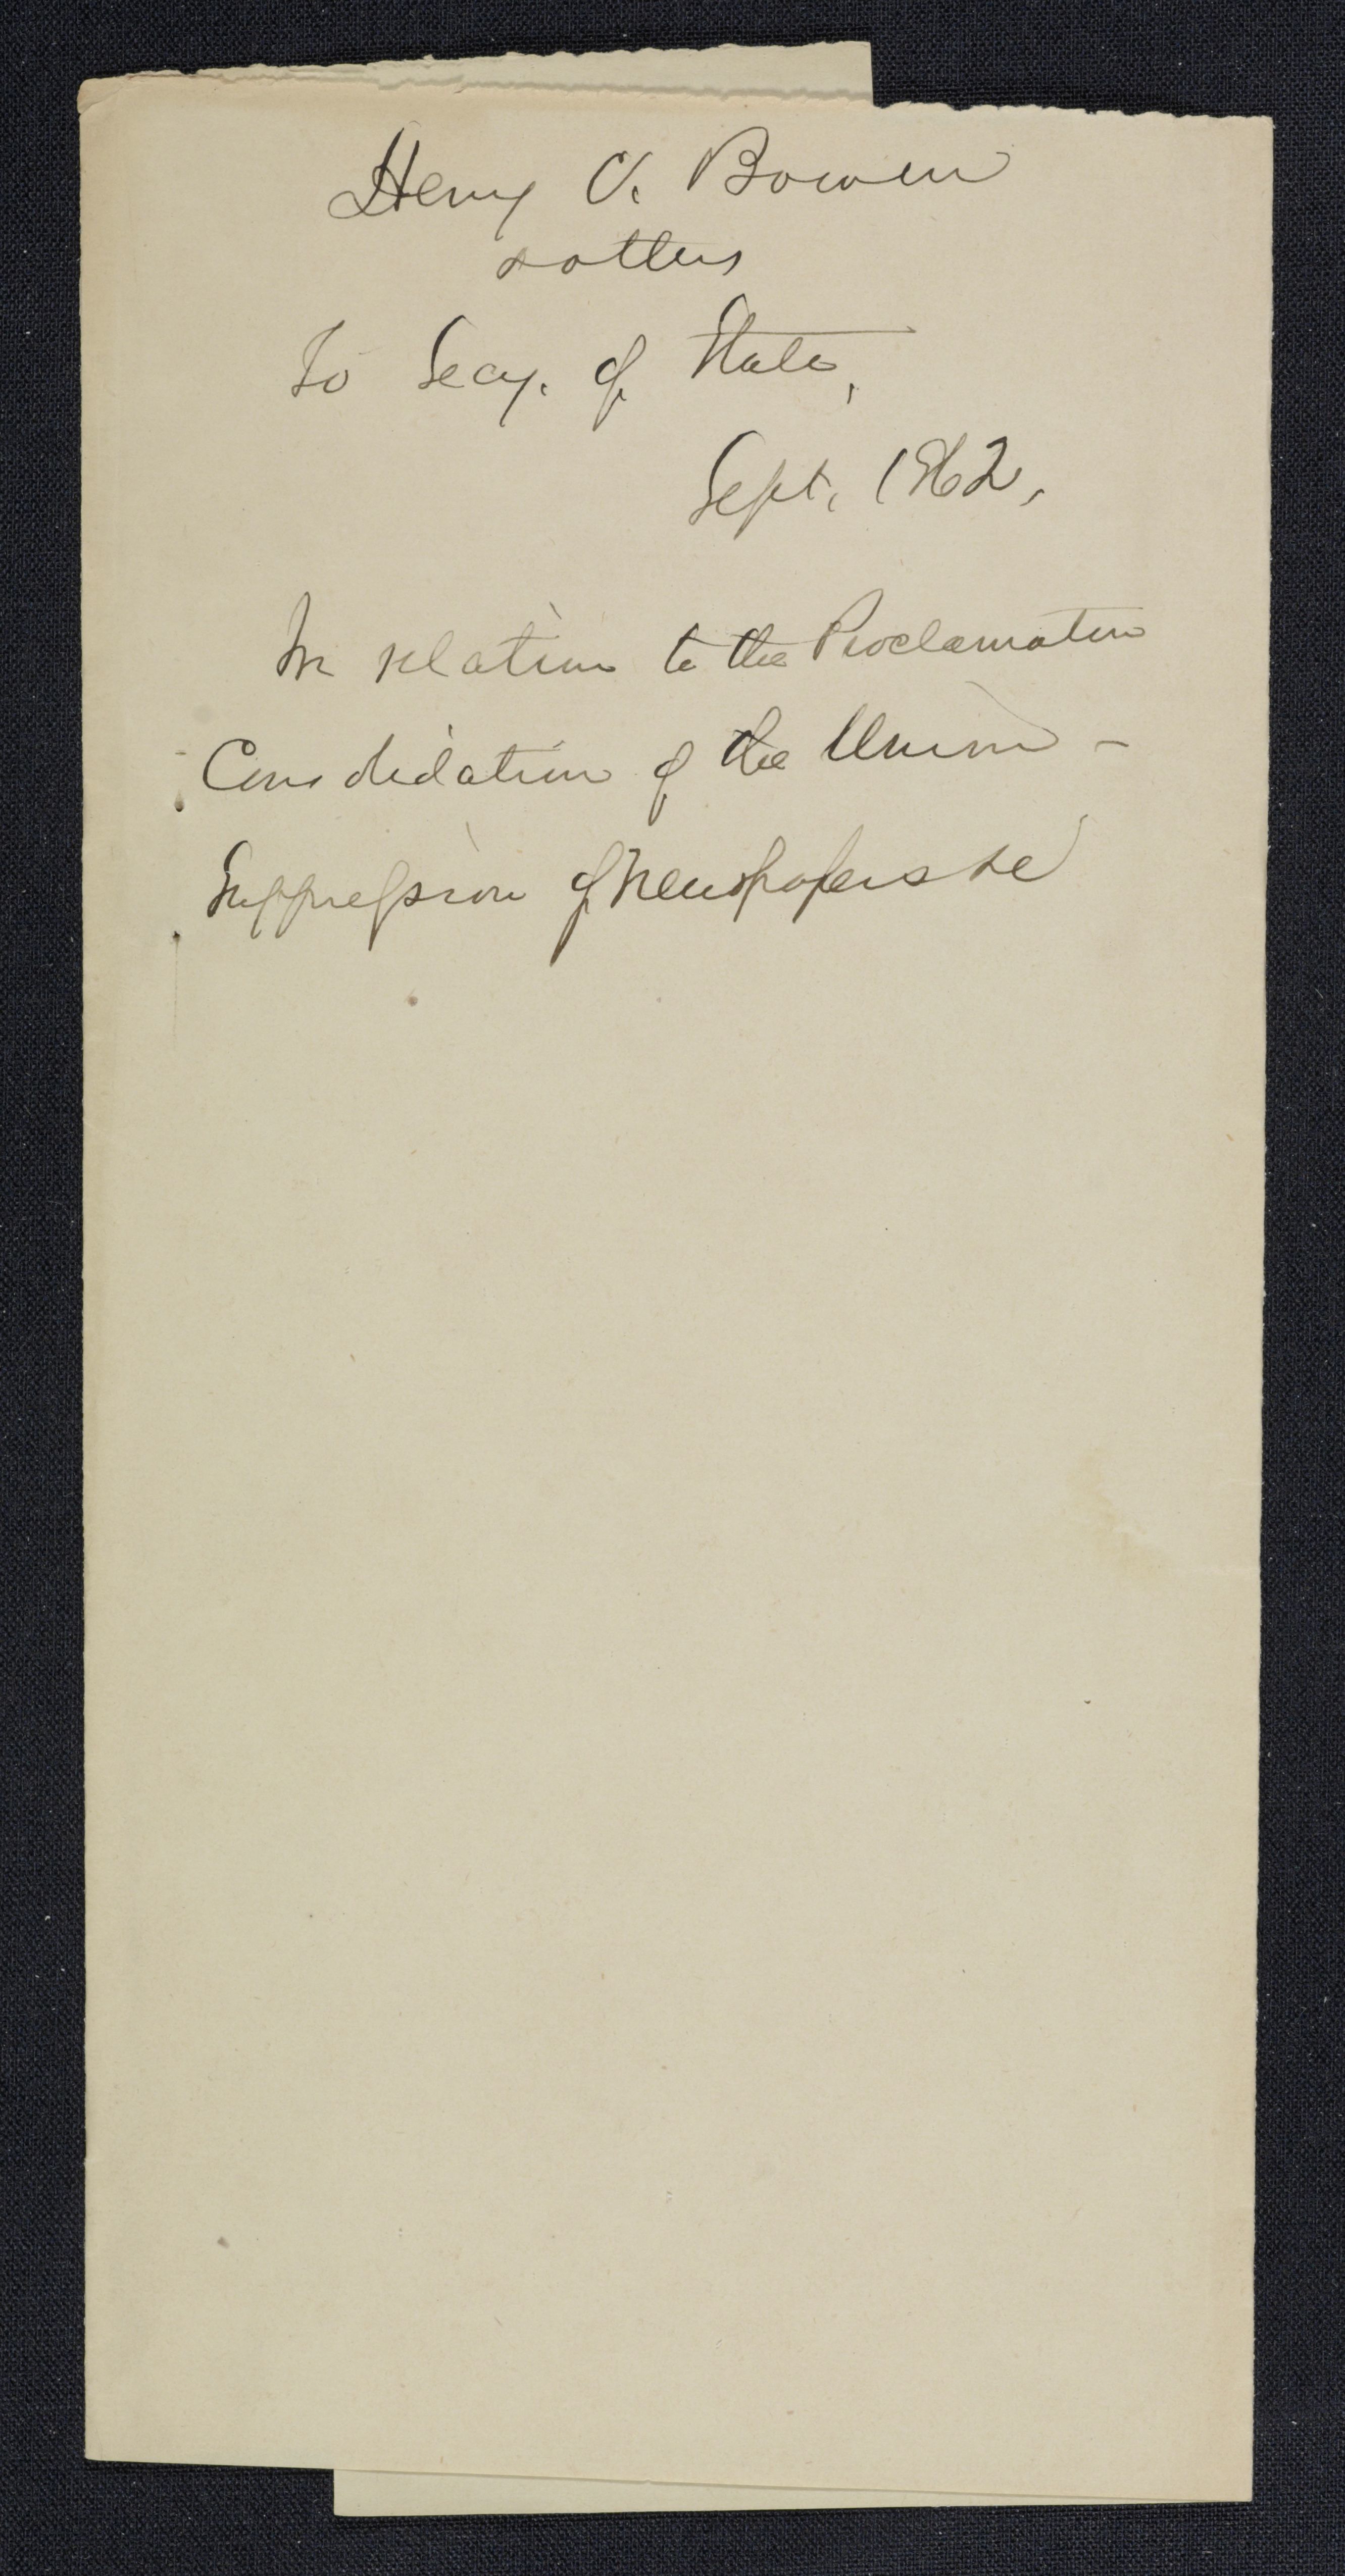 Henry C. Bowen
& others
To Secy. of State,
Sept. 1862.
In relation to the Proclamation
Consolidation of the Union -
Suppression of Newspapers &c